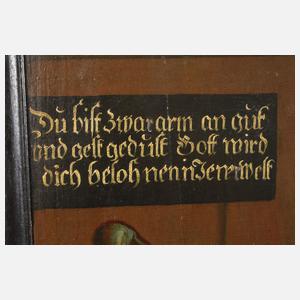 Du bist zwar arm an gut
vnd gelt gedult Gott wird
dich belohnen in Jener welt